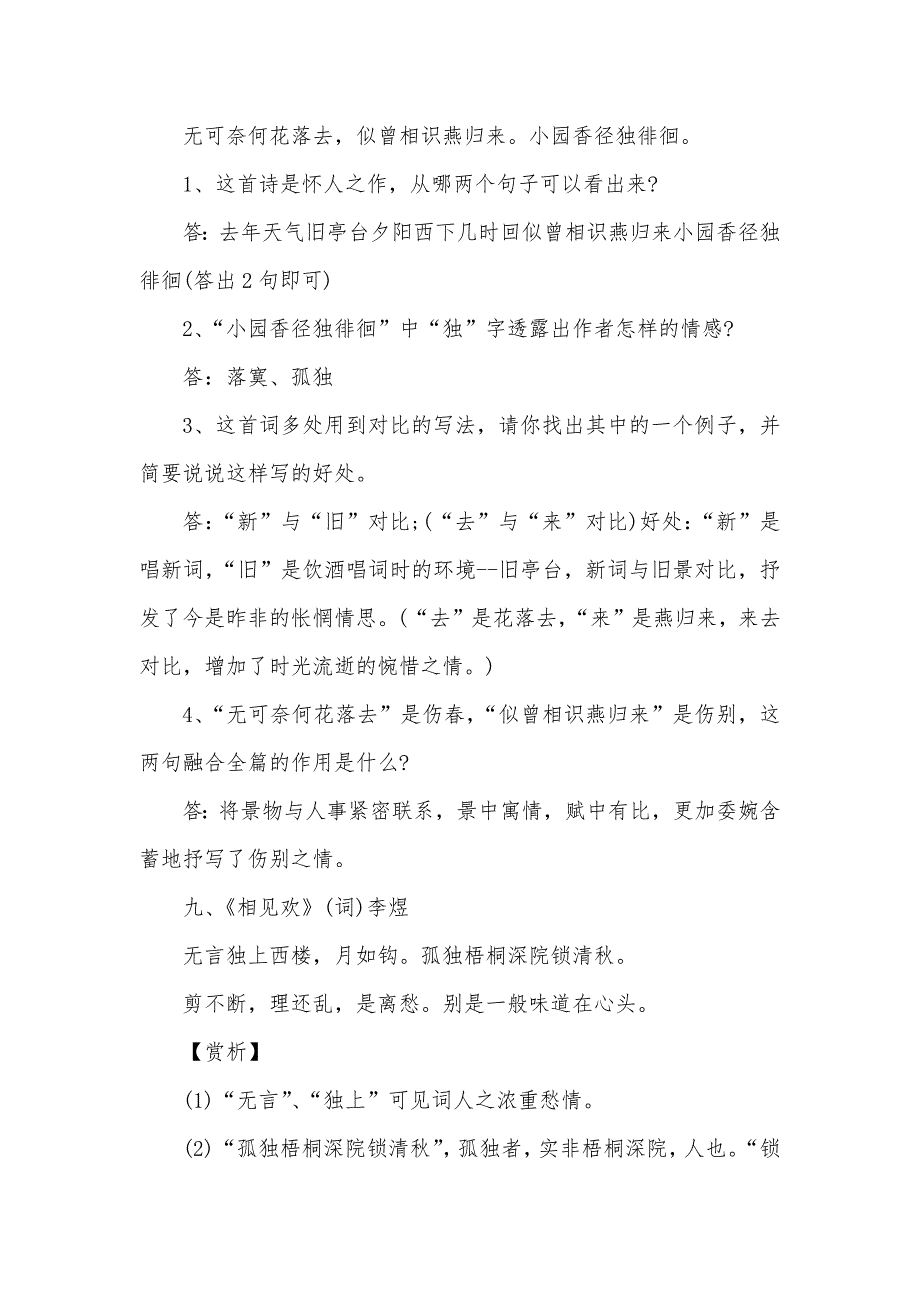 无可奈何花落去，似曾相识燕归来。小园香径独徘徊。
1、这首诗是怀人之作，从哪两个句子可以看出来?
答：去年天气旧亭台夕阳西下几时回似曾相识燕归来小园香径独
徘徊(答出2句即可)
2、“小园香径独徘徊”中“独”字透露出作者怎样的情感?
答：落寞、孤独
3、这首词多处用到对比的写法，请你找出其中的一个例子，并
简要说说这样写的好处。
答：“新”与“旧”对比;(“去”与“来”对比)好处：“新”是
唱新词，“旧”是饮酒唱词时的环境--旧亭台，新词与旧景对比，抒
发了今是昨非的怅惘情思。(“去”是花落去，“来”是燕归来，来去
对比，增加了时光流逝的惋惜之情。)
4、“无可奈何花落去”是伤春，“似曾相识燕归来”是伤别，这
两句融合全篇的作用是什么?
答：将景物与人事紧密联系，景中寓情，赋中有比，更加委婉含
蓄地抒写了伤别之情。
九、《相见欢》(词)李煜
无言独上西楼，月如钩。孤独梧桐深院锁清秋。
剪不断，理还乱，是离愁。别是一般味道在心头。
【赏析】
(1)“无言”、“独上”可见词人之浓重愁情。
(2)“孤独梧桐深院锁清秋”，孤独者，实非梧桐深院，人也。“锁